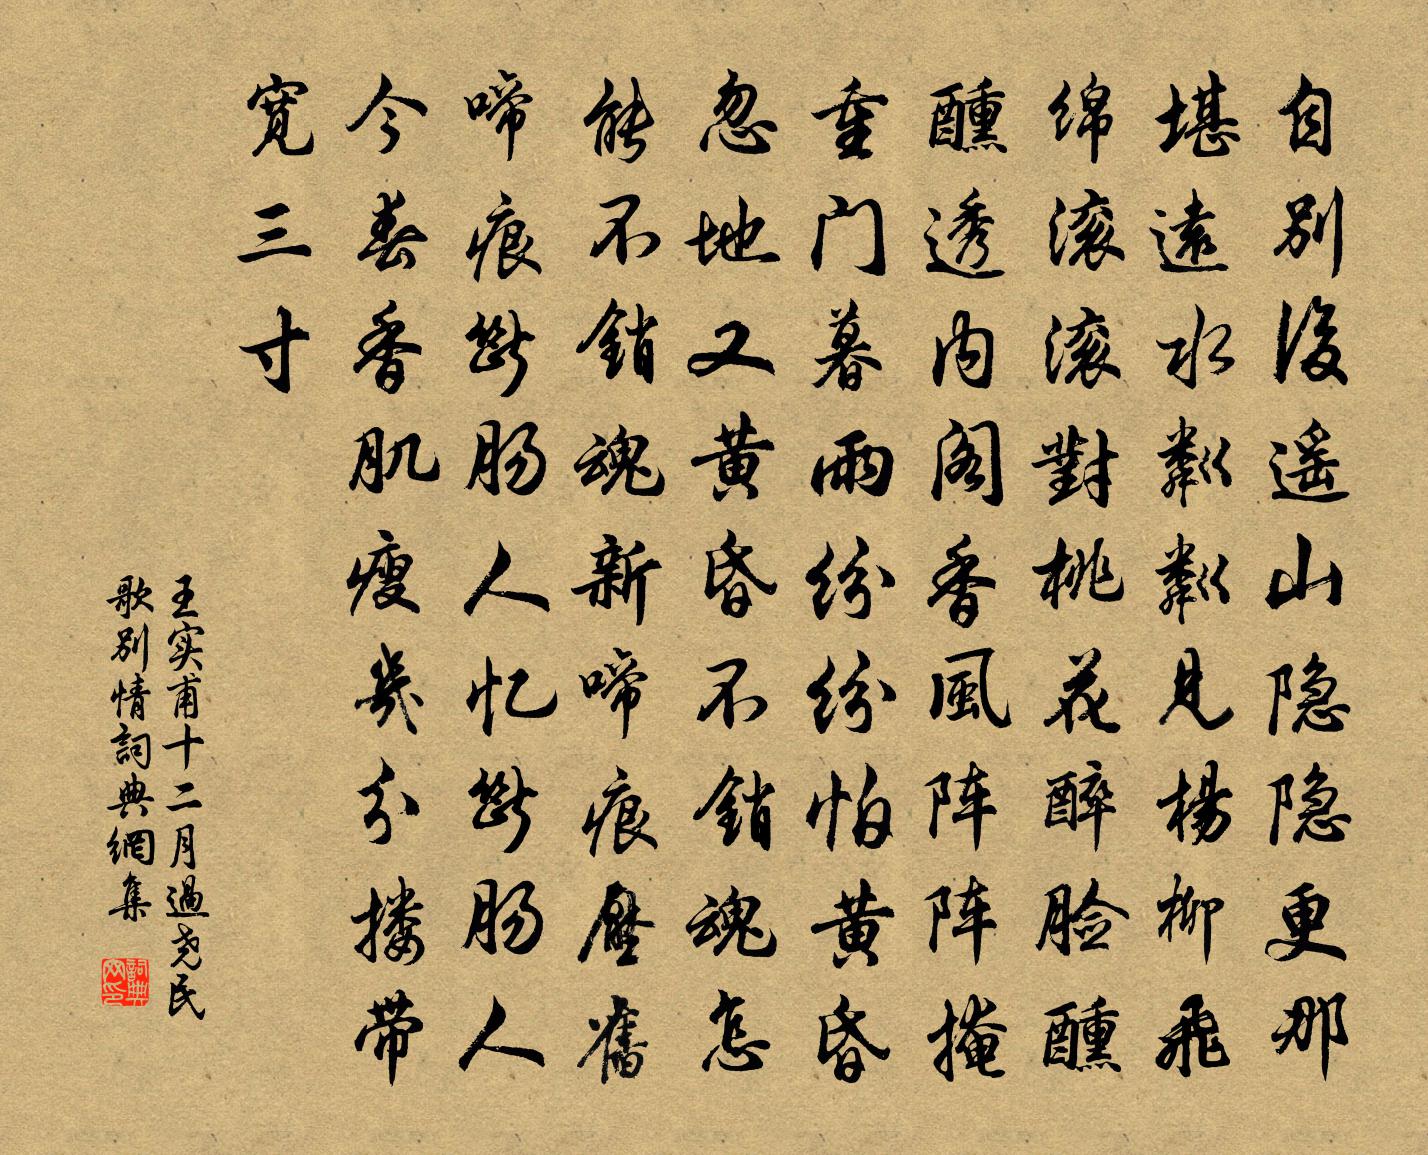 自别後遥山隐隐更那
堪遠水粼粼見楊柳飛
绵滚滚對桃花醉脸醺
醺透内阁香風阵阵掩
重门暮雨纷纷怕黄昏
忽地又黄昏不銷魂怎
能不銷魂新啼痕壓舊
啼痕斷肠人忆斷肠人
今春香肌瘦幾分搂带
宽三寸
王实甫十二月過尧民
歌别情詞典網集
詞典
网印